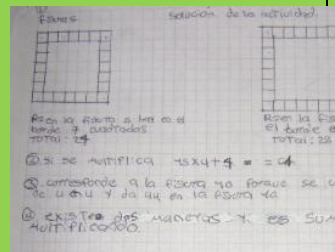 ①
figuras
solución de la actividad.
R=en la figura a hay en el
borde 7 cuadrados
TOTAL: 24
R=en la fig
el borde
TOTAL: 28
② si se multiplica 15x4+4 = 64
③ corresponde a la figura 10 porque se
de y da 44 en la figura 10
④ existe dos maneras y es sum
multiplicado